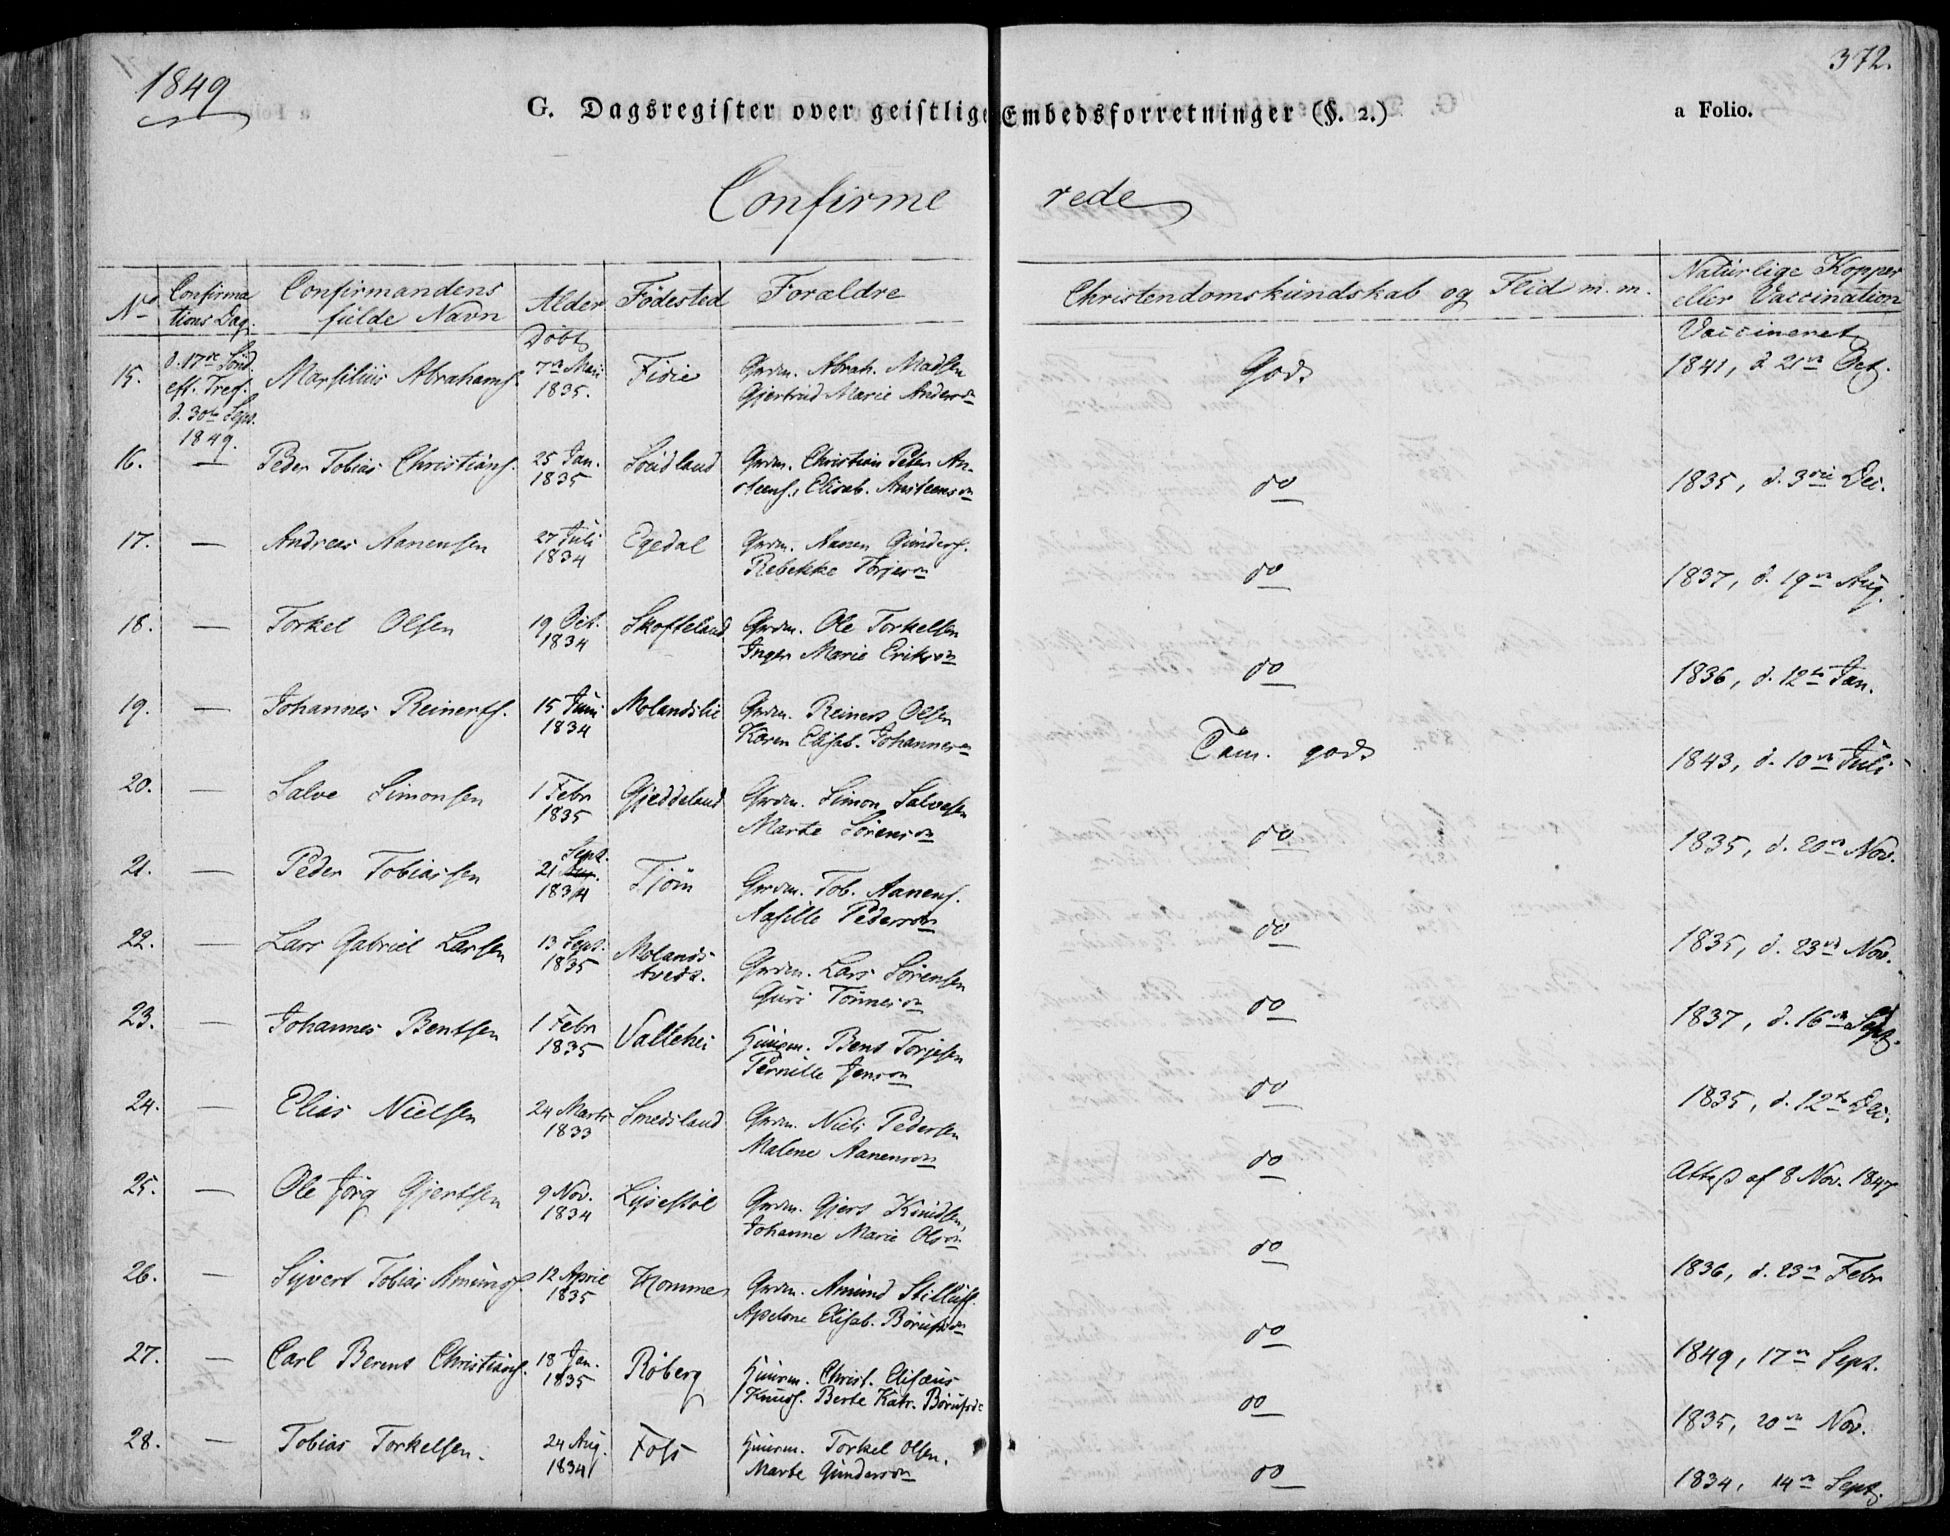 1849
372.
G. Dagsregister over geistlige Embedsforretninger (§. 2.)
a Folio.
Confirmerede
No Confirmations Dag. Confirmandens fulde Navn Alder Födested Forældre Christendomskundskab og Flid m. m. Naturlige Kopper eller Vaccination
Döbt Vaccineret
15. d. 17de Sönd. eft. Tref. d. 30te Sept. 1849. Marsilius Abrahams. 7de Mai 1835. Fidie Grdm. Abrah. Madsen Gjertrud Marie Andersdn Godt 1841, d. 21de Oct.
16. — Peder Tobias Christians. 25 Jan. 1835 Sördland Grdm. Christian Peter An- steens., Elisab. Ansteensdn do 1835, d. 3die Dec.
17. — Andreas Aanensen 27 Juli 1834 Egedal Grdm. Aanen Gunders. Rebekke Torjesdn do 1837, d. 19de Aug.
18. — Torkel Olsen 19 Oct. 1834 Skofteland Grdm. Ole Torkelsen Inger Marie Eriksdn do 1836, d. 12te Jan.
19. — Johannes Reinerts. 15 Juni 1834 Molandslie Grdm. Reinert Olsen Karen Elisab. Johannesdn Tam. godt 1843, d. 10de Juli
20. — Salve Simonsen 1 Febr 1835 Gjeddeland Grdm. Simon Salvesen Marte Sörensdn do 1835, d. 20de Nov.
21. — Peder Tobiassen 21 Sept. 1834 Tjöm Grdm. Tob. Aanens. Aasille Pedersdn do 1835, d. 23de Nov.
22. — Lars Gabriel Larsen 13 Sept. 1835 Molands- tvedt. Grdm. Lars Sörensen Guri Tönnesdn do 1837, d. 16de Sept.
23. — Johannes Bentsen 1 Febr 1835 Vallehei Huusm. Bent Torjesen Pernille Jensdn do 1835, d. 12te Dec.
24. — Elias Nielsen 24 Marts 1833 Smedsland Grdm. Niels Pedersen Malene Aanensdn do Attest af 8 Nov. 1847
25. — Ole Jörg Gjertsen 9 Nov. 1834 Lysestöl Grdm. Gjert Knudsen, Johanne Marie Olsdn do 1836, d. 23de Febr
26. — Syvert Tobias Amunds. 12 April 1835 Homme Grdm. Amund Stillufs. Apelone Elisab. Börufsdn do 1849, 17de Sept.
27. — Carl Berent Christians. 18 Jan. 1835 Röberg Huusm. Christ. Elisæus Knuds. Berte Katr. Börufsdr do 1835, 20de Nov.
28. — Tobias Torkelsen. 24 Aug. 1834 Foss Huusm. Torkel Olsen. Marte Gundersdn do 1834, 14de Sept.